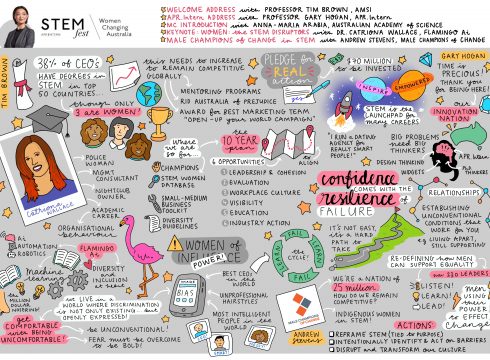 STEM fest
Women
Changing
Australia
WELCOME ADDRESS with PROFESSOR TIM BROWN, AMSI
APR.Intern ADDRESS with PROFESSOR GARY HOGAN, APR.Intern
MC INTRODUCTION with ANNA-MARIA ARABIA, AUSTRALIAN ACADEMY OF SCIENCE
KEYNOTE: WOMEN THE STEM DISRUPTORS with DR. CATRIONA WALLACE, FLAMINGO AI
MALE CHAMPIONS OF CHANGE IN STEM with ANDREW STEVENS, MALE CHAMPIONS OF CHANGE
TIM BROWN
38% of CEO's
HAVE DEGREES in
STEM in TOP
50 COUNTRIES...
though ONLY
3 are WOMEN!
Catriona
Wallace
POLICE
WOMAN
MGMT.
CONSULTANT
NIGHTCLUB
OWNER
ACADEMIC
CAREER
ORGANISATIONAL
BEHAVIOUR
this NEEDS to INCREASE
to REMAIN COMPETITIVE
GLOBALLY
MENTORING PROGRAMS
RID AUSTRALIA of PREJUDICE
AWARD for BEST MARKETING TEAM
"OPEN-UP YOUR WORLD CAMPAIGN"
PLEDGE for
REAL
action
$30 MILLION
to BE INVESTED
INSPIRE
EMPOWERED
STEM is the
LAUNCHPAD for
many CAREERS
GARY HOGAN
TIME is
PRECIOUS!
THANK YOU
for BEING HERE!
our
INNOVATION
NATION
APR.Intern
"I RUN a DATING
AGENCY for
REALLY SMART
PEOPLE!"
BIG PROBLEMS
need BIG
THINKERS
DESIGN THINKING
WIDGETS
where
we ARE
so far...
CHAMPIONS
STEM WOMEN
DATABASE
SMALL-MEDIUM
BUSINESS
TOOLKIT
DIVERSITY
GUIDELINES
the
10 YEAR
plan
ALIGN
6 OPPORTUNITIES
1 LEADERSHIP & COHESION
2 EVALUATION
3 WORKPLACE CULTURE
4 VISIBILITY
5 EDUCATION
6 INDUSTRY ACTION
confidence
COMES WITH THE
resilience
of FAILURE
IT'S NOT EASY,
it's a HARD
PATH to
TAKE
RELATIONSHIPS
ESTABLISHING
UNCONVENTIONAL
CONDITIONS that
WORK for YOU
eg LIVING APART,
STILL SUPPORTING
RE-DEFINING how MEN
CAN SUPPORT EQUALITY
FLAMINGO AI
AI
AUTOMATION
ROBOTICS
Machine
Learning
DIVERSITY
and
INCLUSION
at their CORE
the
MILLION
DOLLAR
WEDDING!
WE LIVE in a
WORLD WHERE DISCRIMINATION
is NOT ONLY EXISTING - but
OPENLY EXPRESSED!
GET
COMFORTABLE
with BEING
UNCOMFORTABLE!
BE UNCONVENTIONAL!
FEAR must be OVERCOME
to BE BOLD!
BIAS
WOMEN of
INFLUENCE
POWER!
BEST CEO's in the
WORLD
UNPROFESSIONAL
HAIRSTYLES
MOST INTELLIGENT
PEOPLE in the
WORLD
SMART
FAIL
LEARN
FAIL
LEARN
the
CYCLE!
WE'RE a NATION of
25 million
HOW DO WE REMAIN
COMPETITIVE?
INDIGENOUS WOMEN in
STEM!
now 230 LEADERS
LISTEN!
LEARN!
LEAD!
men
USING
their
POWER
to EFFECT
Change
MALE CHAMPIONS
ANDREW
Stevens
ACTIONS:
REFRAME STEM (TIE to PURPOSE)
INTENTIONALLY IDENTIFY & ACT on BARRIERS
DISRUPT and TRANSFORM our CULTURE